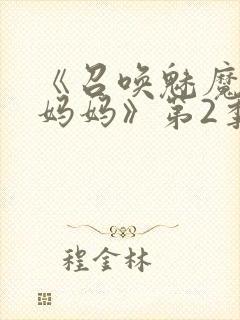 《召唤魅魔
妈妈》第2季
程金林